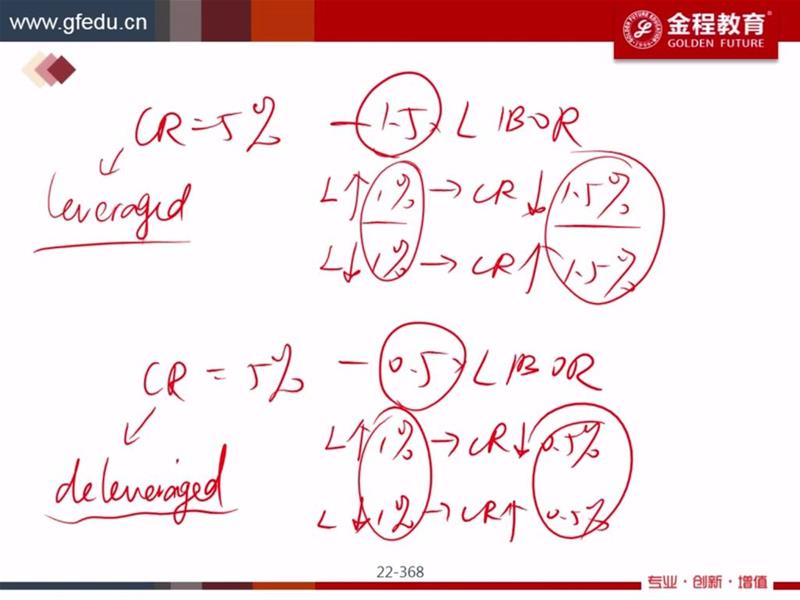 www.gfedu.cn
金程教育
GOLDEN FUTURE
CR = 5% - 1.5 LIBOR
leveraged
L↑ 1% → CR ↓ 1.5%
L↓ 1% → CR ↑ 1.5%
CR = 5% - 0.5 LIBOR
deleveraged
L↑ 1% → CR ↓ 0.5%
L↓ 1% → CR ↑ 0.5%
22-368
专业·创新·增值